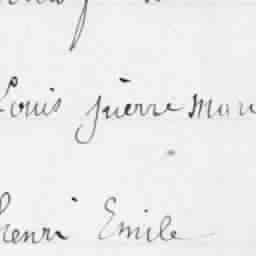 Louis pierre Mari
henri Emile